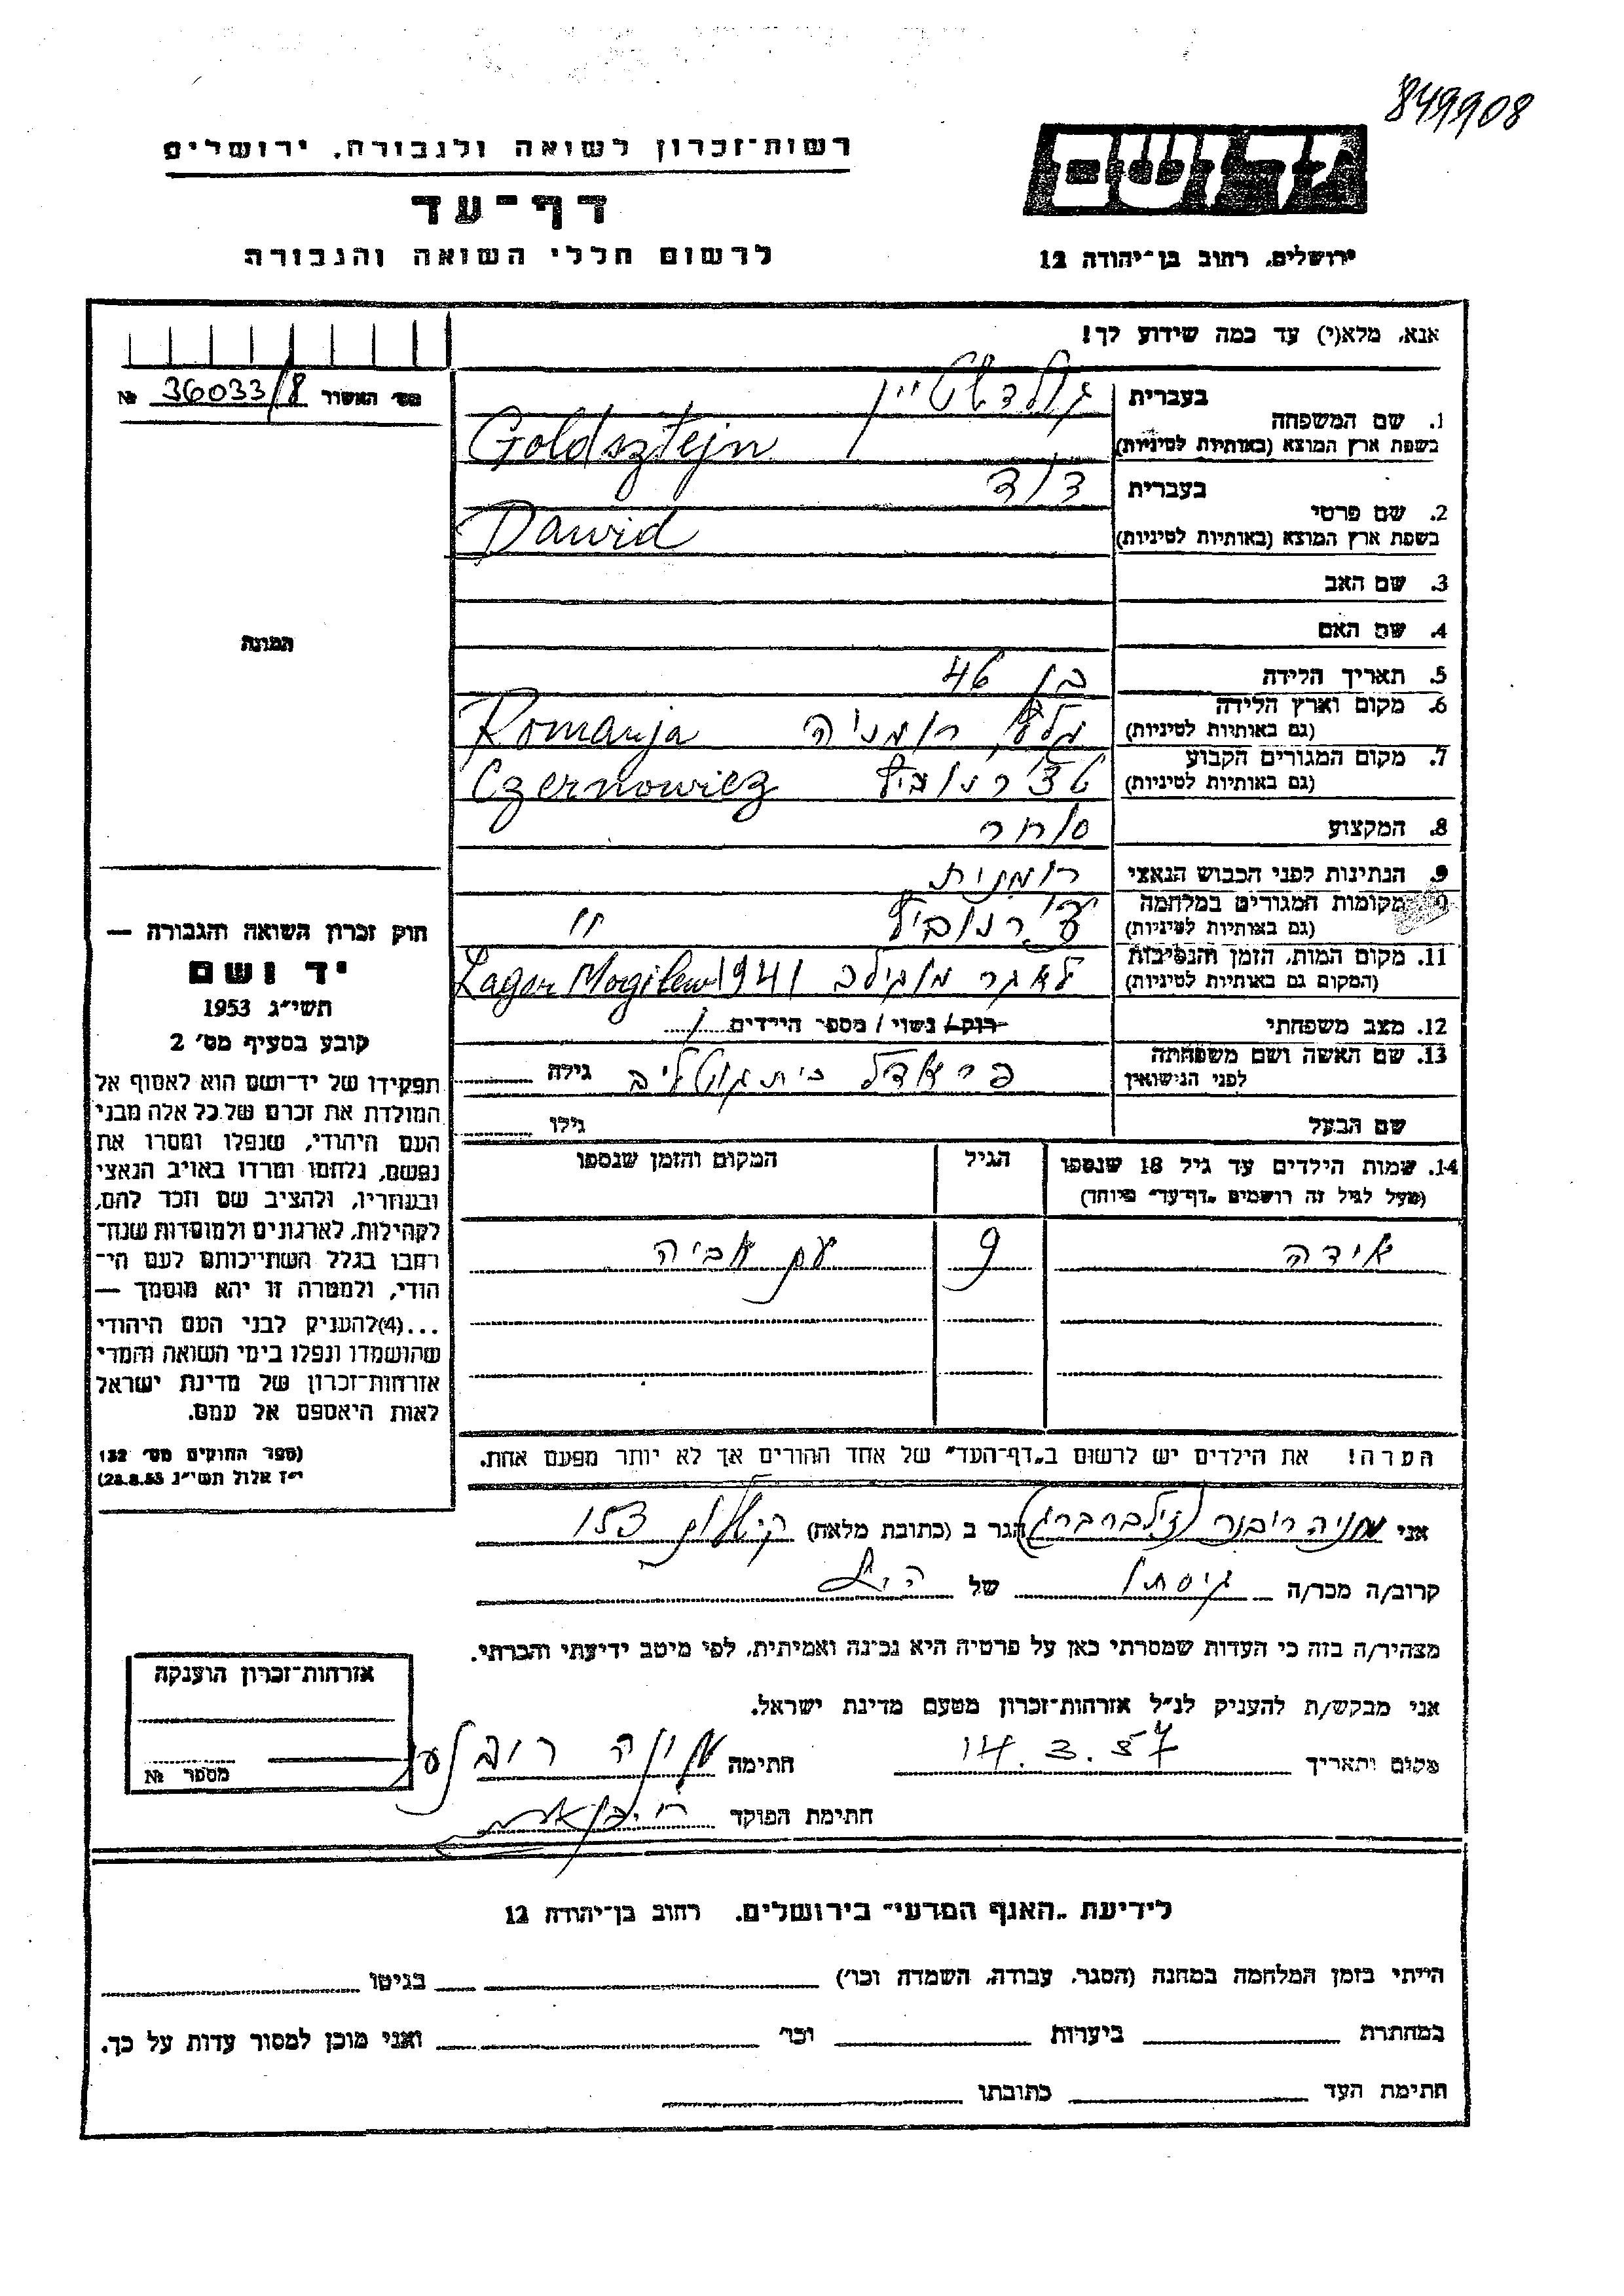 849908
יד ושם
ירושלים, רחוב בן־יהודה 12
רשות־זכרון לשואה ולגבורה, ירושלים
דף־עד
לרשום חללי השואה והגבורה
אנא, מלא(י) עד כמה שידוע לך!
מס׳ האשור 36033/8 №
1. שם המשפחה בעברית גולדשטיין
בשפת ארץ המוצא (באותיות לטיניות) Goldsztejn
2. שם פרטי בעברית דוד
בשפת ארץ המוצא (באותיות לטיניות) Dawid
3. שם האב
4. שם האם
5. תאריך הלידה בן 46
6. מקום וארץ הלידה
(גם באותיות לטיניות) רומניה Romanja
7. מקום המגורים הקבוע
(גם באותיות לטיניות) טצ׳רנוביץ Czernowicz
8. המקצוע סוחר
9. הנתינות לפני הכבוש הנאצי רומנית
מקומות המגורים במלחמה
(גם באותיות לטיניות) צ׳רנוביץ "
11. מקום המות, הזמן והנסיבות
(המקום גם באותיות לטיניות) לאגר מוגילב 1941 Lager Mogilew
12. מצב משפחתי רוק / נשוי / מספר הילדים 1
13. שם האשה ושם משפחתה
לפני הנישואין גילה
שם הבעל גילו
14. שמות הילדים עד גיל 18 שנספו הגיל המקום והזמן שנספו
(מעל לגיל זה רושמים „דף־עד״ מיוחד)
אידה 9 עם אביה
הערה! את הילדים יש לרשום ב„דף־העד״ של אחד ההורים אך לא יותר מפעם אחת.
התמונה
חוק זכרון השואה והגבורה —
יד ושם
תשי״ג 1953
קובע בסעיף מס׳ 2
תפקידו של יד־ושם הוא לאסוף אל
המולדת את זכרם של כל אלה מבני
העם היהודי, שנפלו ומסרו את
נפשם, נלחמו ומרדו באויב הנאצי
ובעוזריו, ולהציב שם וזכר להם,
לקהילות, לארגונים ולמוסדות שנח־
רבו בגלל השתייכותם לעם הי־
הודי, ולמטרה זו יהא מוסמך —
...(4)להעניק לבני העם היהודי
שהושמדו ונפלו בימי השואה והמרי
אזרחות־זכרון של מדינת ישראל
לאות היאספם אל עמם.
(ספר החוקים מס׳ 132
י״ז אלול תשי״ג 28.8.53)
אני מניה ריבנר (זילברברג) הגר ב (כתובת מלאה) 153
קרוב/ה מכר/ה גיסתו של הנ״ל
מצהיר/ה בזה כי העדות שמסרתי כאן על פרטיה היא נכונה ואמיתית, לפי מיטב ידיעתי והכרתי.
אני מבקש/ת להעניק לנ״ל אזרחות־זכרון מטעם מדינת ישראל.
מקום ותאריך 14.3.57 חתימה
חתימת הפוקד
אזרחות־זכרון הוענקה
מספר №
לידיעת „האגף המדעי״ בירושלים, רחוב בן־יהודה 12
הייתי בזמן המלחמה במחנה (הסגר, עבודה, השמדה וכו׳) בגיטו
במחתרת ביערות וכו׳ ואני מוכן למסור עדות על כך.
חתימת העד כתובתו